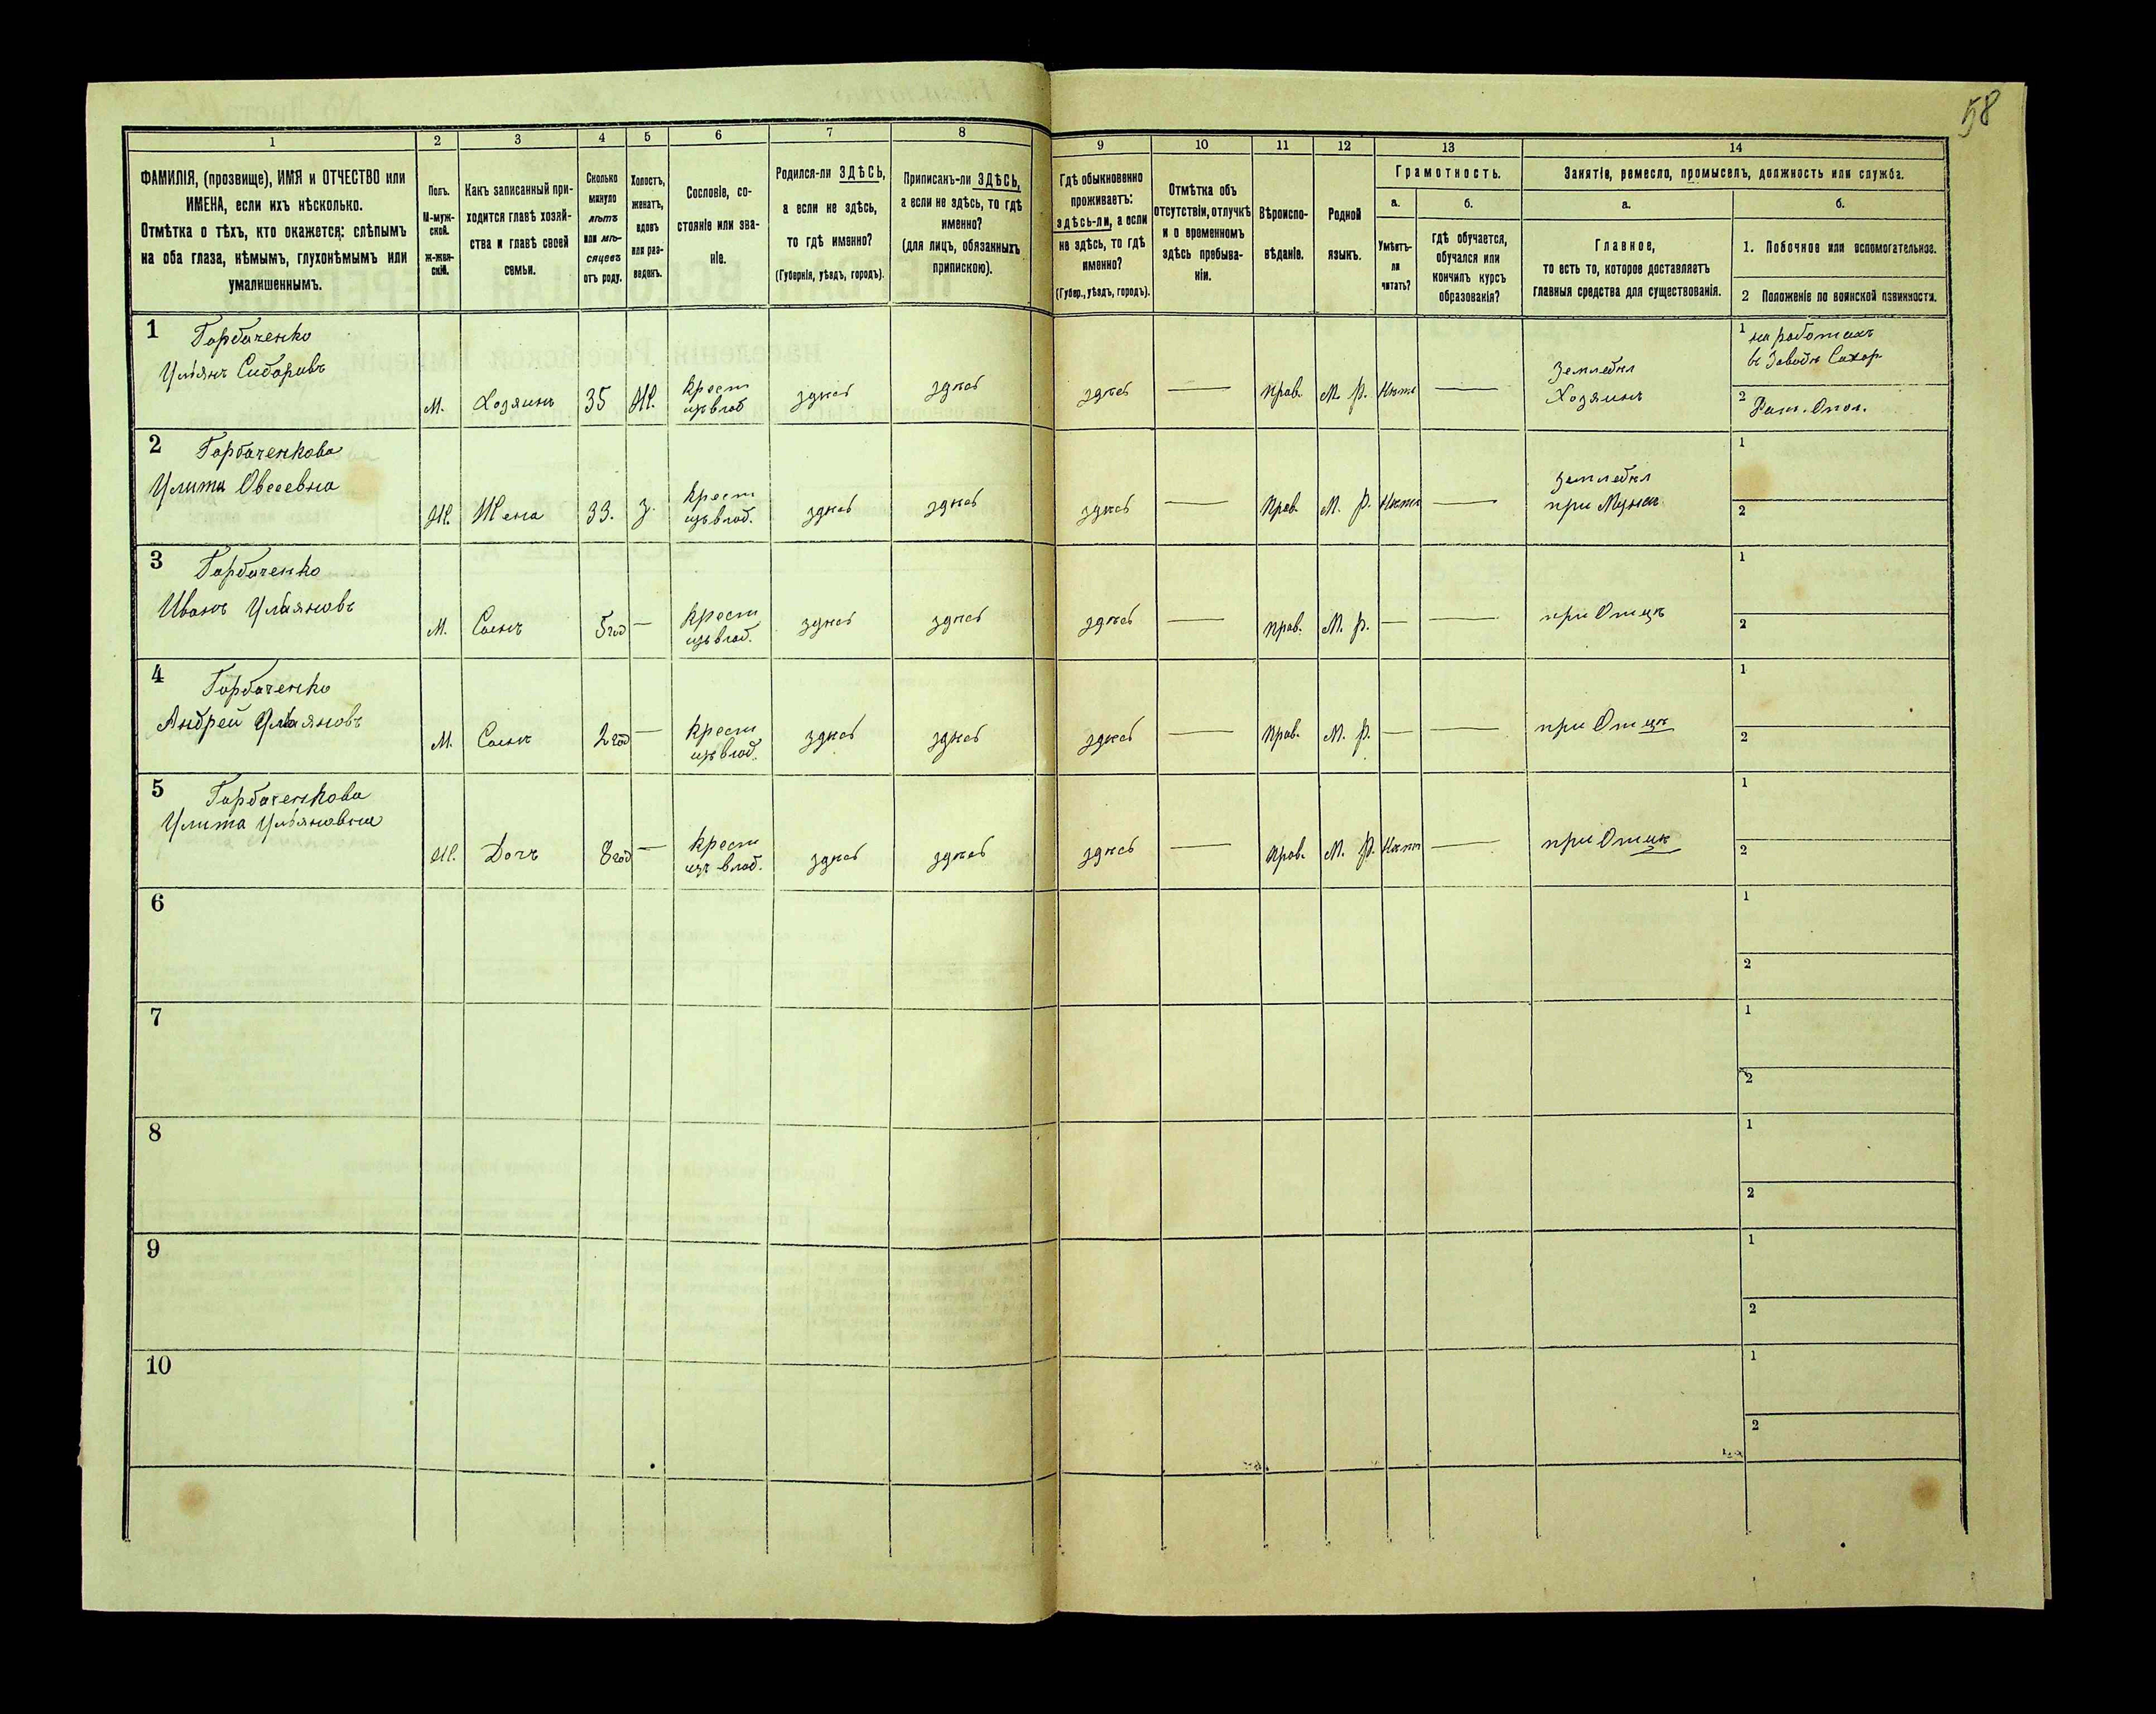 58
1 2 3 4 5 6 7 8 9 10 11 12 13 14
ФАМИЛІЯ, (прозвище), ИМЯ и ОТЧЕСТВО или
ИМЕНА, если ихъ нѣсколько.
Отмѣтка о тѣхъ, кто окажется: слѣпымъ
на оба глаза, нѣмымъ, глухонѣмымъ или
умалишеннымъ.
Полъ.
М-муж-
ской.
Ж-жен-
скій.
Какъ записанный при-
ходится главѣ хозяй-
ства и главѣ своей
семьи.
Сколько
минуло
лѣтъ
или мѣ-
сяцевъ
отъ роду.
Холостъ,
женатъ,
вдовъ
или раз-
веденъ.
Сословіе, со-
стояніе или зва-
ніе.
Родился-ли ЗДѢСЬ,
а если не здѣсь,
то гдѣ именно?
(Губернія, уѣздъ, городъ).
Приписанъ-ли ЗДѢСЬ,
а если не здѣсь, то гдѣ
именно?
(для лицъ, обязанныхъ
припискою).
Гдѣ обыкновенно
проживаетъ:
здѣсь-ли, а если
не здѣсь, то гдѣ
именно?
(Губер., уѣздъ, городъ).
Отмѣтка объ
отсутствіи, отлучкѣ
и о временномъ
здѣсь пребыва-
ніи.
Вѣроиспо-
вѣданіе.
Родной
языкъ.
Грамотность.
а.
Умѣетъ-
ли
читать?
б.
гдѣ обучается,
обучался или
кончилъ курсъ
образованія?
Занятіе, ремесло, промыселъ, должность или служба.
а.
Главное,
то есть то, которое доставляетъ
главныя средства для существованія.
б.
1. Побочное или вспомогательное.
2 Положеніе по воинской повинности.
1 Горбаченко
Ульянъ Сидоровъ
М. Хозяинъ 35 Ж. крест
изъ влад здѣсь здѣсь здѣсь — прав. М. р. Нѣтъ —
Земледѣл
Хозяинъ
1 на работахъ
в Заводѣ Сахар
2 Рат. Опол.
2 Горбаченкова
Улита Овсеевна
Ж. Жена 33. З. крест
изъ влад. здѣсь здѣсь здѣсь — прав. М. р. Нѣтъ —
Земледѣл
при Мужѣ
1
2
3 Горбаченко
Иванъ Ульяновъ
М. Сынъ 5 год — крест
изъ влад. здѣсь здѣсь здѣсь — прав. М. р. — — при Отцѣ
1
2
4 Горбаченко
Андрей Ульяновъ
М. Сынъ 2 год — крест
изъ влад. здѣсь здѣсь здѣсь — прав. М. р. — — при Отцѣ
1
2
5 Горбаченкова
Улита Ульяновна
Ж. Дочъ 8 год — крест
изъ влад. здѣсь здѣсь здѣсь — прав. М. р. Нѣтъ — при Отцѣ
1
2
6
1
2
7
1
2
8
1
2
9
1
2
10
1
2